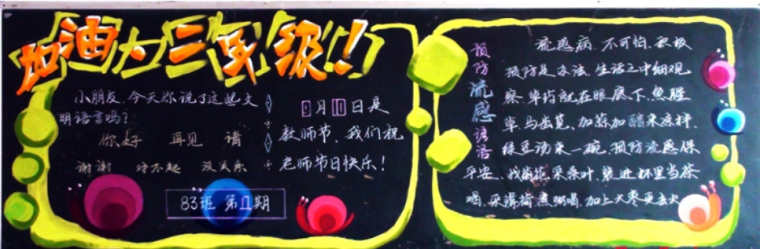 加油大三年级!!
小朋友，今天你说了这些文
明语言吗？
你好 再见 请
谢谢 对不起 没关系
83班 第1期
9月10日是
教师节，我们祝
老师节日快乐！
预防流感
流感病，不可怕，积极
预防是办法，生活之中细观
察，草药就在眼底下，鱼腥
草马齿苋，加蒜加醋来凉拌，
绿豆汤来一碗，预防流感保
平安，找菊花采桑叶，
当茶
喝，
加上大枣更